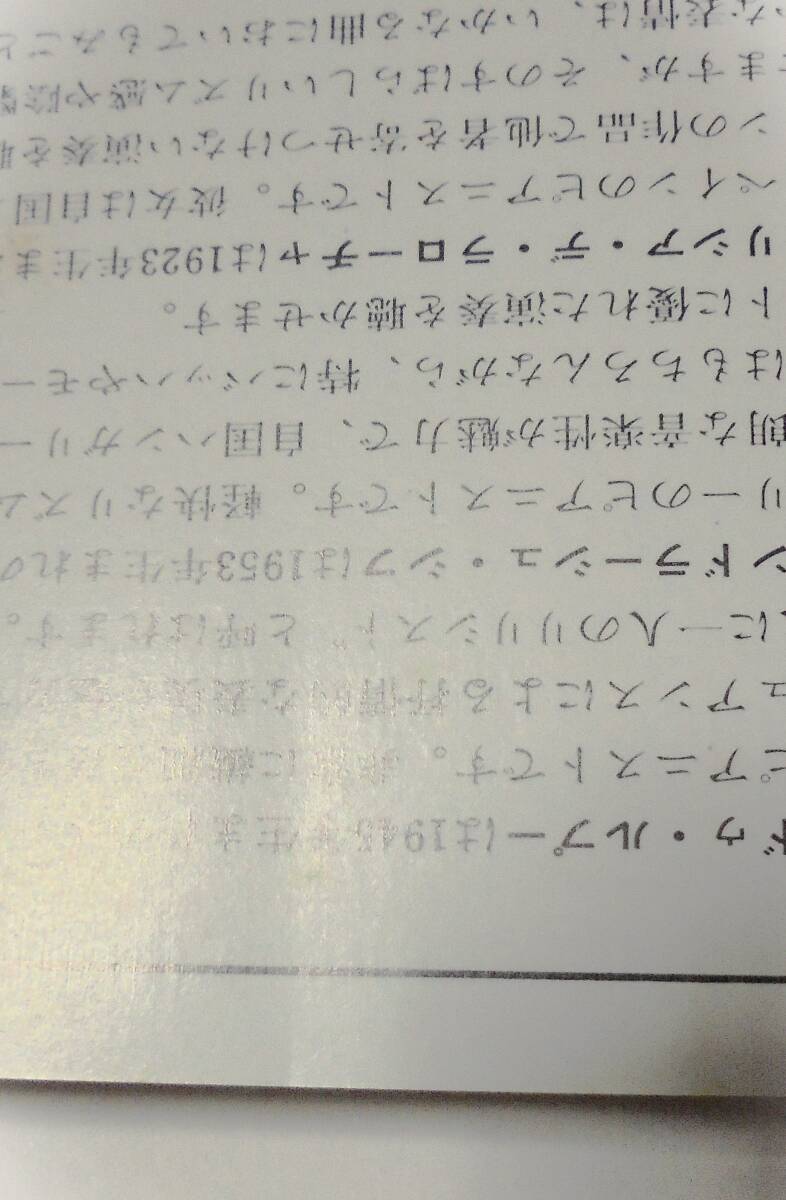 ドゥ・ルプーは1945年生ま
ピアニストです。非常に繊細
ュアンスによる抒情的な表現
に一人のリリシスト〟と呼ばれます。
ンドラーシュ・シフは1953年生まれの
リーのピアニストです。軽快なリズム
朗な音楽性が魅力で、自国ハンガリー
はもちろんながら、特にバッハやモー
トに優れた演奏を聴かせます。
リシア・デ・ラローチャは1923年生まれ
ペインのピアニストです。彼女は自国
ンの作品で他者を寄せつけない演奏を聴
ますが、そのすばらしいリズム感や陰影
な表情は、いかなる曲においてもみごと